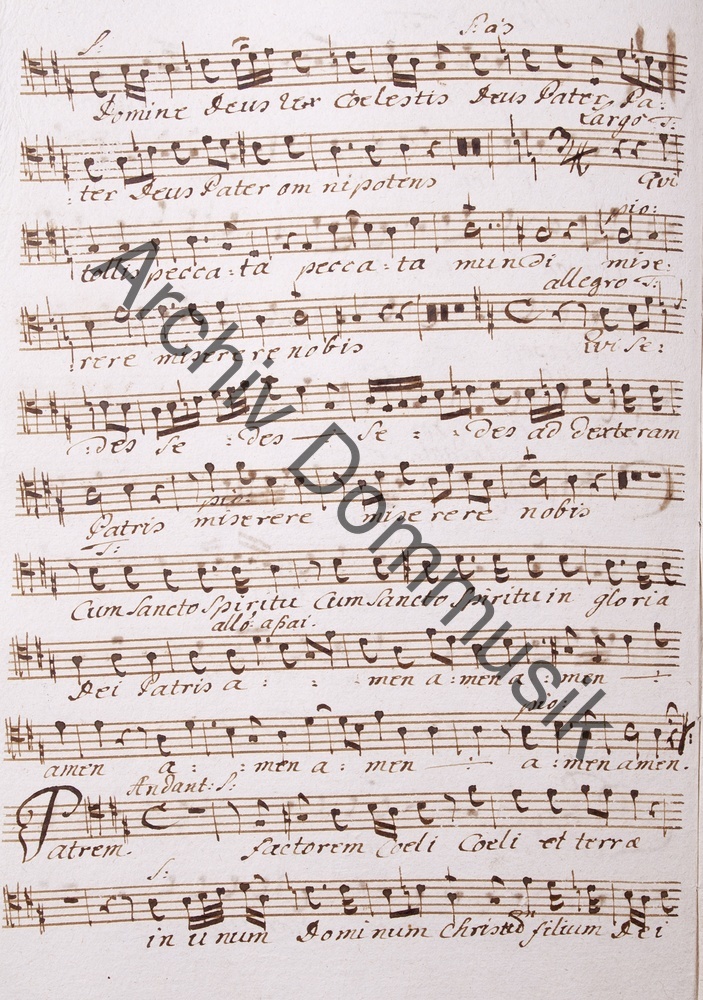 S: S:as
Domine Deus Rex Coelestis Deus Pater Pa:
Largo S:
:ter Deus Pater omnipotens Qui
pio:
tollis pecca:ta pecca:ta mundi mise:
allegro S:
:rere miserere nobis Qui se:
:des se :des se : :des ad dexteram
pio:
Patris miserere miserere nobis
S:
Cum Sancto Spiritu Cum Sancto Spiritu in gloria
allo: assai.
Dei Patris a : : men a:men a:men
pio:
amen a: :men a:men a:men amen.
Andant: S:
Patrem factorem Coeli Coeli et terrae
S:
in unum Dominum Christum filium Dei
Archiv Dommusik